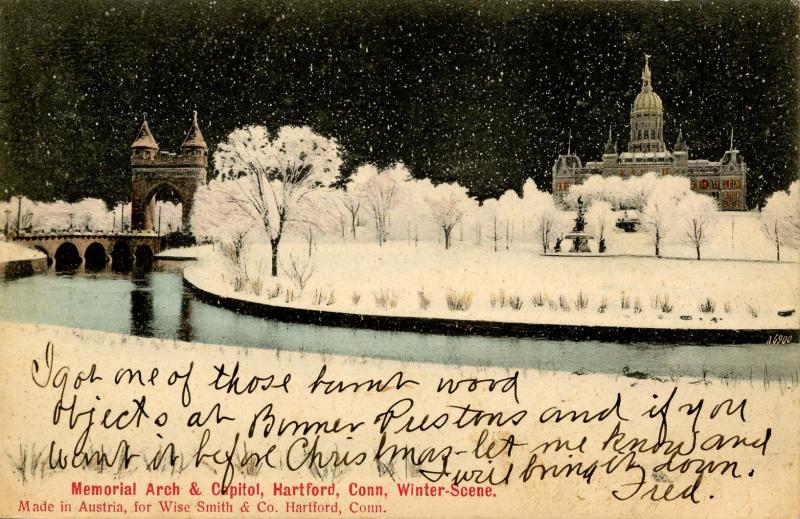 16900
I got one of those burnt wood
objects at Bonner Prestons and if you
want it before Christmas - let me know and
I will bring it down.
Fred.
Memorial Arch & Capitol, Hartford, Conn, Winter-Scene.
Made in Austria, for Wise Smith & Co. Hartford, Conn.